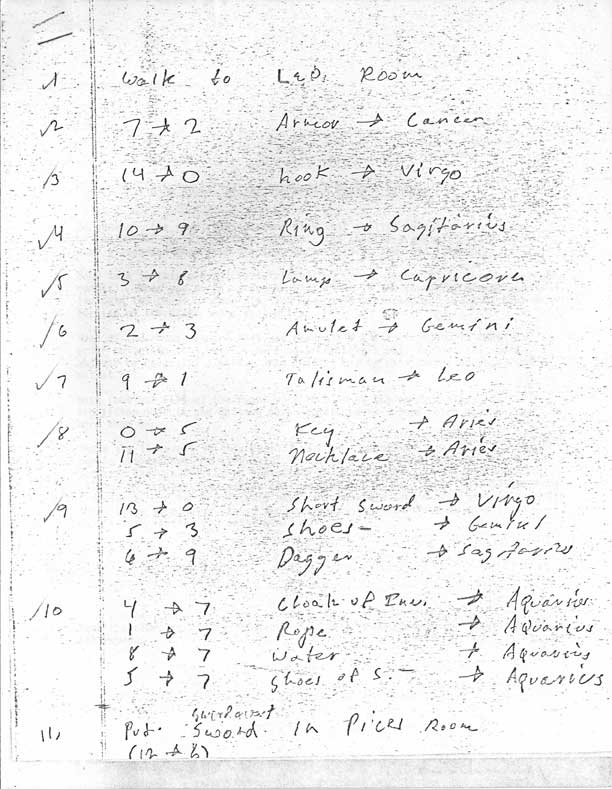 √1 Walk to Leo. Room
√2 7 → 2 Armor → Cancer
/3 14 → 0 hook → Virgo
√4 10 → 9 Ring → Sagitarius
√5 3 → 8 Lamp → Capricorn
/6 2 → 3 Amulet → Gemini
√7 9 → 1 Talisman → Leo
/8 0 → 5 Key → Aries
11 → 5 Necklace → Aries
/9 13 → 0 Short Sword → Virgo
5 → 3 Shoes - → Gemini
6 → 9 Dagger → Sagitarius
/10 4 → 7 Cloak of Inv. → Aquarius
1 → 7 Rope → Aquarius
8 → 7 Water → Aquarius
5 → 7 Shoes of S. - → Aquarius
11. Put. Sword. in Pices Room
(12 → 6)